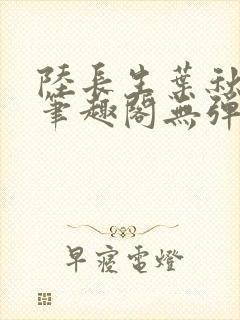 陸長生葉秋
筆趣閣無彈
早寢電燈